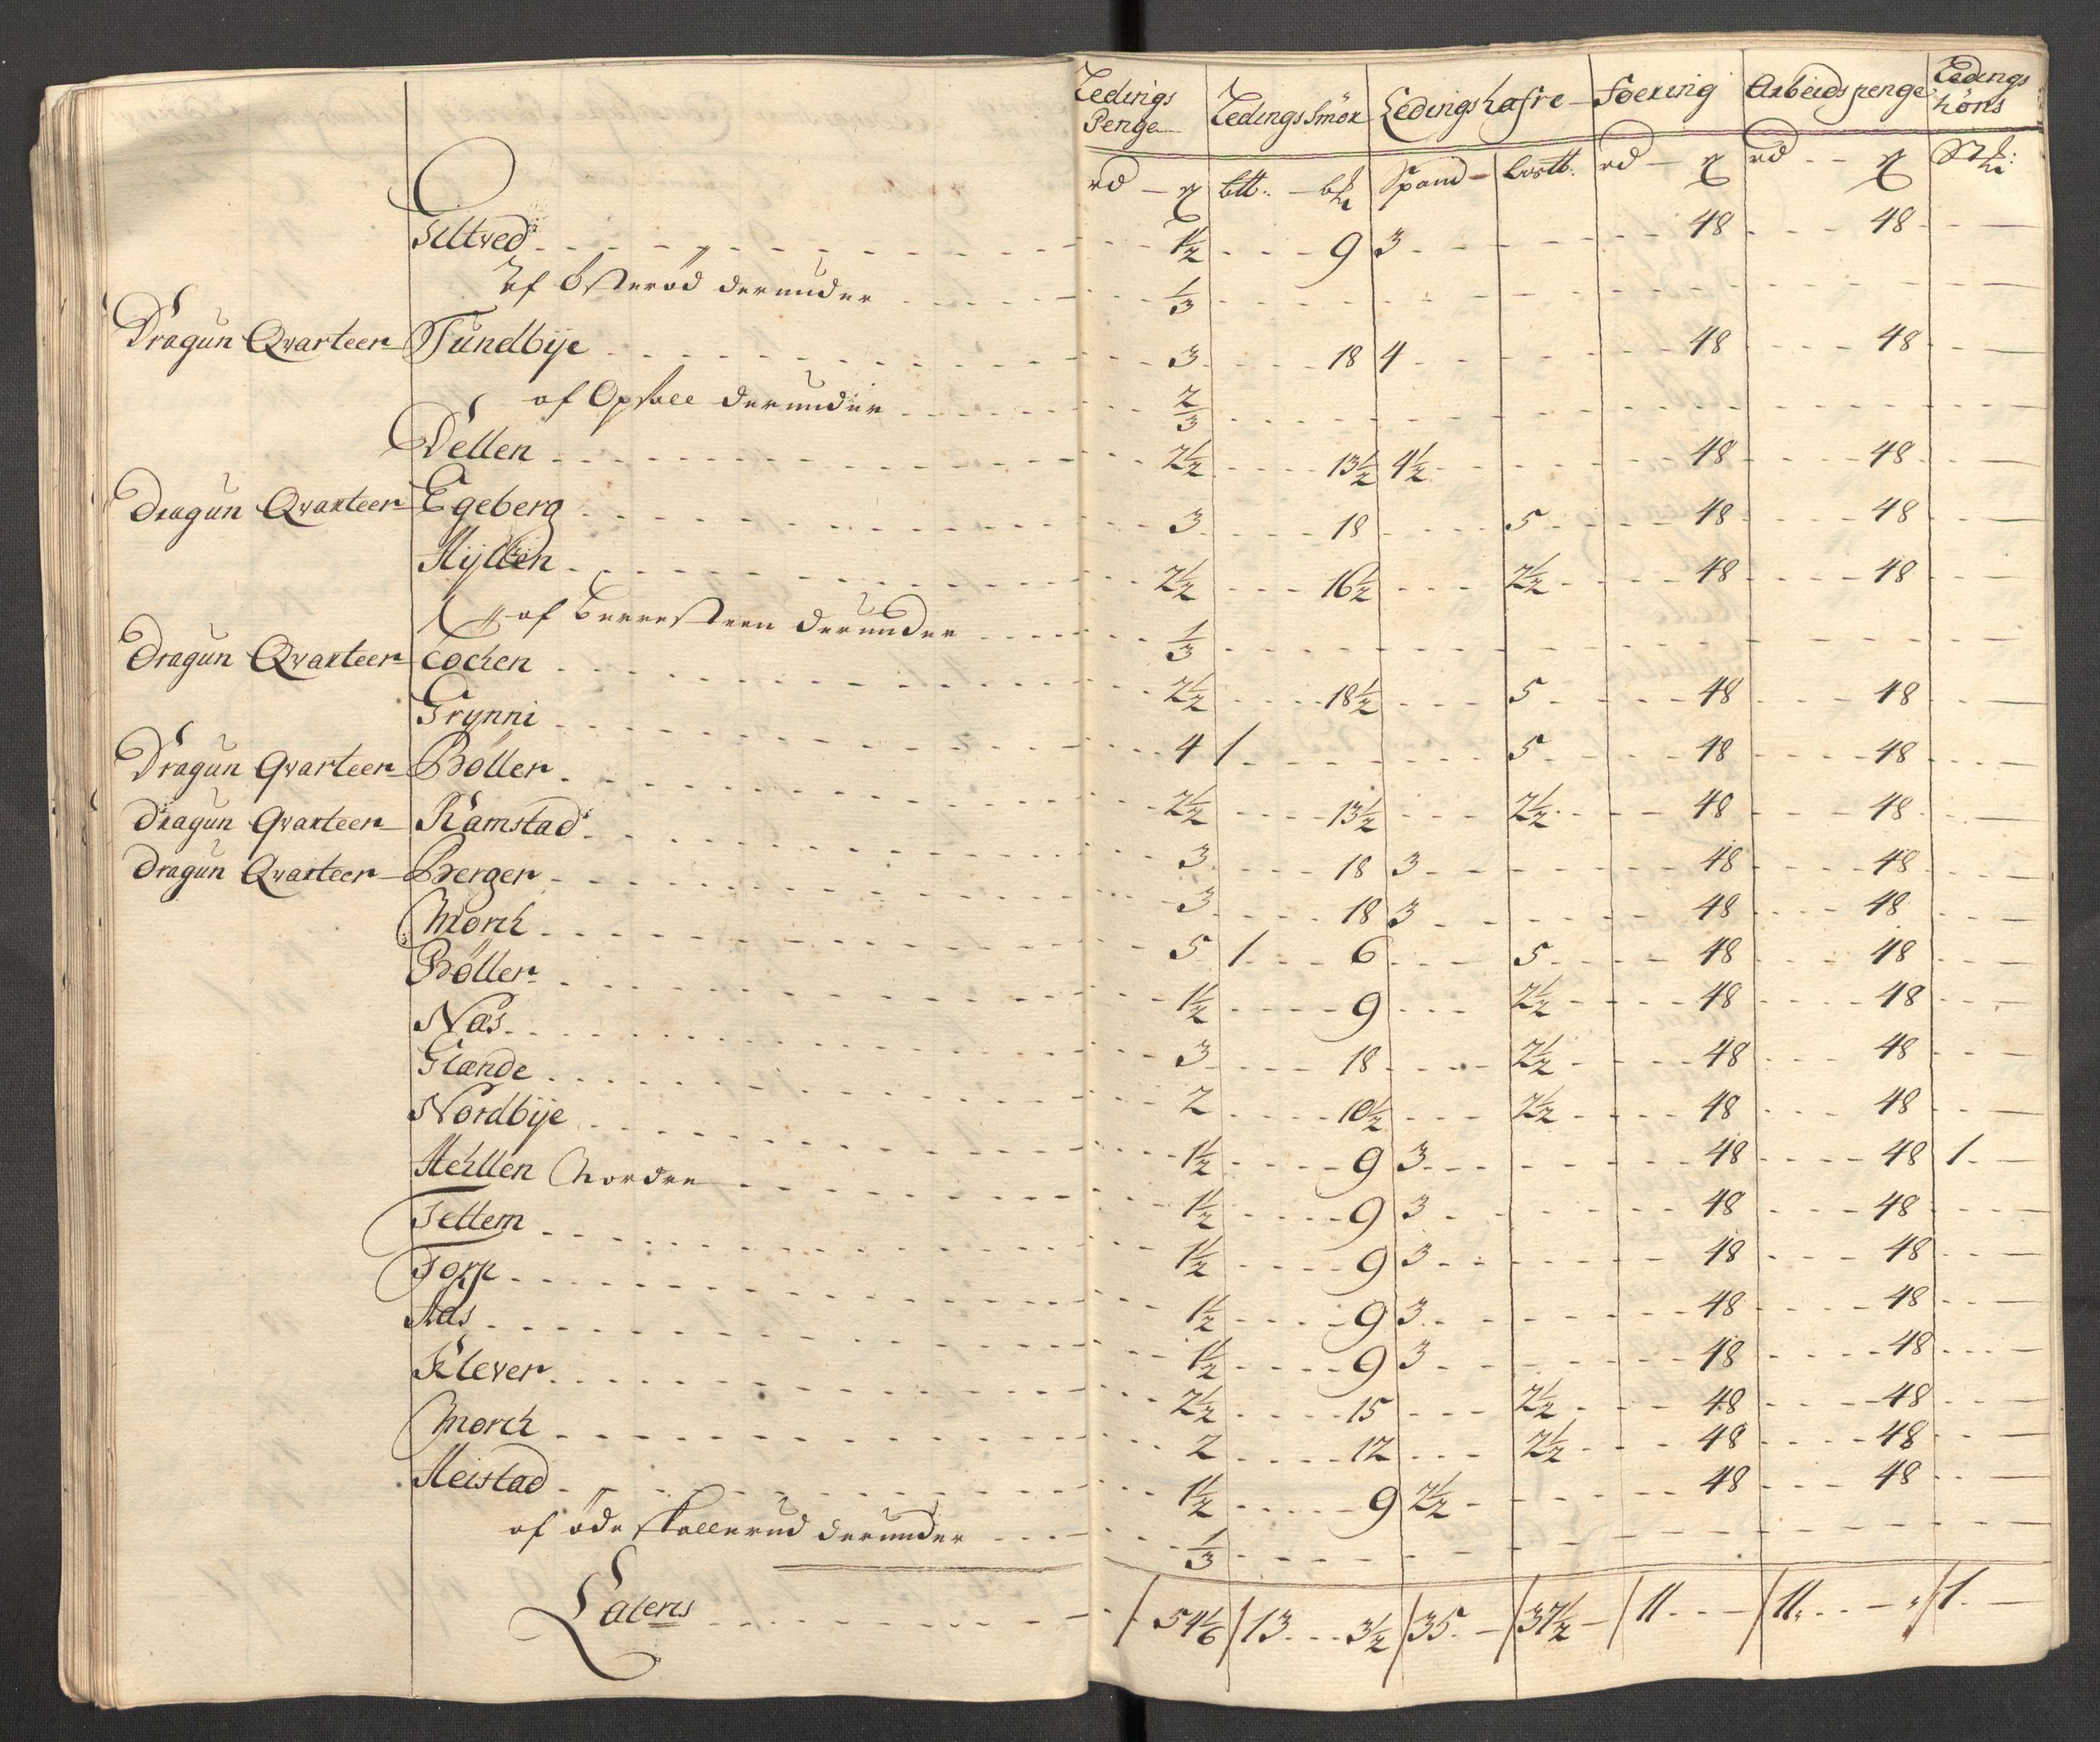 Ledings Penge | Ledings Smör | Ledings hafre | Foering | Arbeids penge | Ledings höns
rd - ß | btt: - bh | Spand - | rd - ß | rd - - ß | Stk:
Siltved - - - 1½ - - - 9 | 3 - - - 48 - - - 48 - -
Af Österöd derunder - - - ⅓ - - -
Dragun Qvarteer Sundbÿe - - - 3 - - - 18 | 4 - - - 48 - - - 48 - -
af Opsall derunder - - - ⅔ - - -
Dellen - - - 2½ - - - 13½ | 4½ - - - 48 - - - 48 - -
Dragun Qvarteer Egeberg - - - 3 - - - 18 - - - 5 - - - 48 - - - 48 - -
Hÿllen - - - 2½ - - - 16½ - - - 2½ - - - 48 - - - 48 - -
af derunder - - - ⅓ - - -
Dragun Qvarteer Lochen - - - 2½ - - - 18½ - - - 5 - - - 48 - - - 48 - -
Grynni - - - 4 | 1 - - - 5 - - - 48 - - - 48 - -
Dragun Qvarteer Böller - - - 2½ - - - 13½ - - - 2½ - - - 48 - - - 48 - -
Dragun Qvarteer Ramstad - - - 3 - - - 18 | 3 - - - 48 - - - 48 - -
Dragun Qvarteer Berger - - - 3 - - - 18 | 3 - - - 48 - - - 48 - -
Morch - - - 5 | 1 - - - 6 - - - 5 - - - 48 - - - 48 - -
Böller - - - 1½ - - - 9 - - - 2½ - - - 48 - - - 48 - -
Näs - - - 3 - - - 18 - - - 2½ - - - 48 - - - 48 - -
Glænde - - - 2 - - - 10½ - - - 2½ - - - 48 - - - 48 - -
Nordbÿe - - - 1½ - - - 9 | 3 - - - 48 - - - 48 | 1 -
Hehllen Nordre - - - 1½ - - - 9 | 3 - - - 48 - - - 48 - -
Tettem - - - 1½ - - - 9 | 3 - - - 48 - - - 48 - -
Torp - - - 1½ - - - 9 | 3 - - - 48 - - - 48 - -
Aas - - - 1½ - - - 9 | 3 - - - 48 - - - 48 - -
Klever - - - 2½ - - - 15 - - - 2½ - - - 48 - - - 48 - -
Morch - - - 2 - - - 12 - - - 2½ - - - 48 - - - 48 - -
Heistad - - - 1½ - - - 9 | 2½ - - - 48 - - - 48 - -
af öde Skollerud derunder - - - ⅓ - - -
Lateris - - - / 54⅙ / 13 - - - 3½ / 35 - / 37½ - / 11 - - - / 11 - - - / 1 -